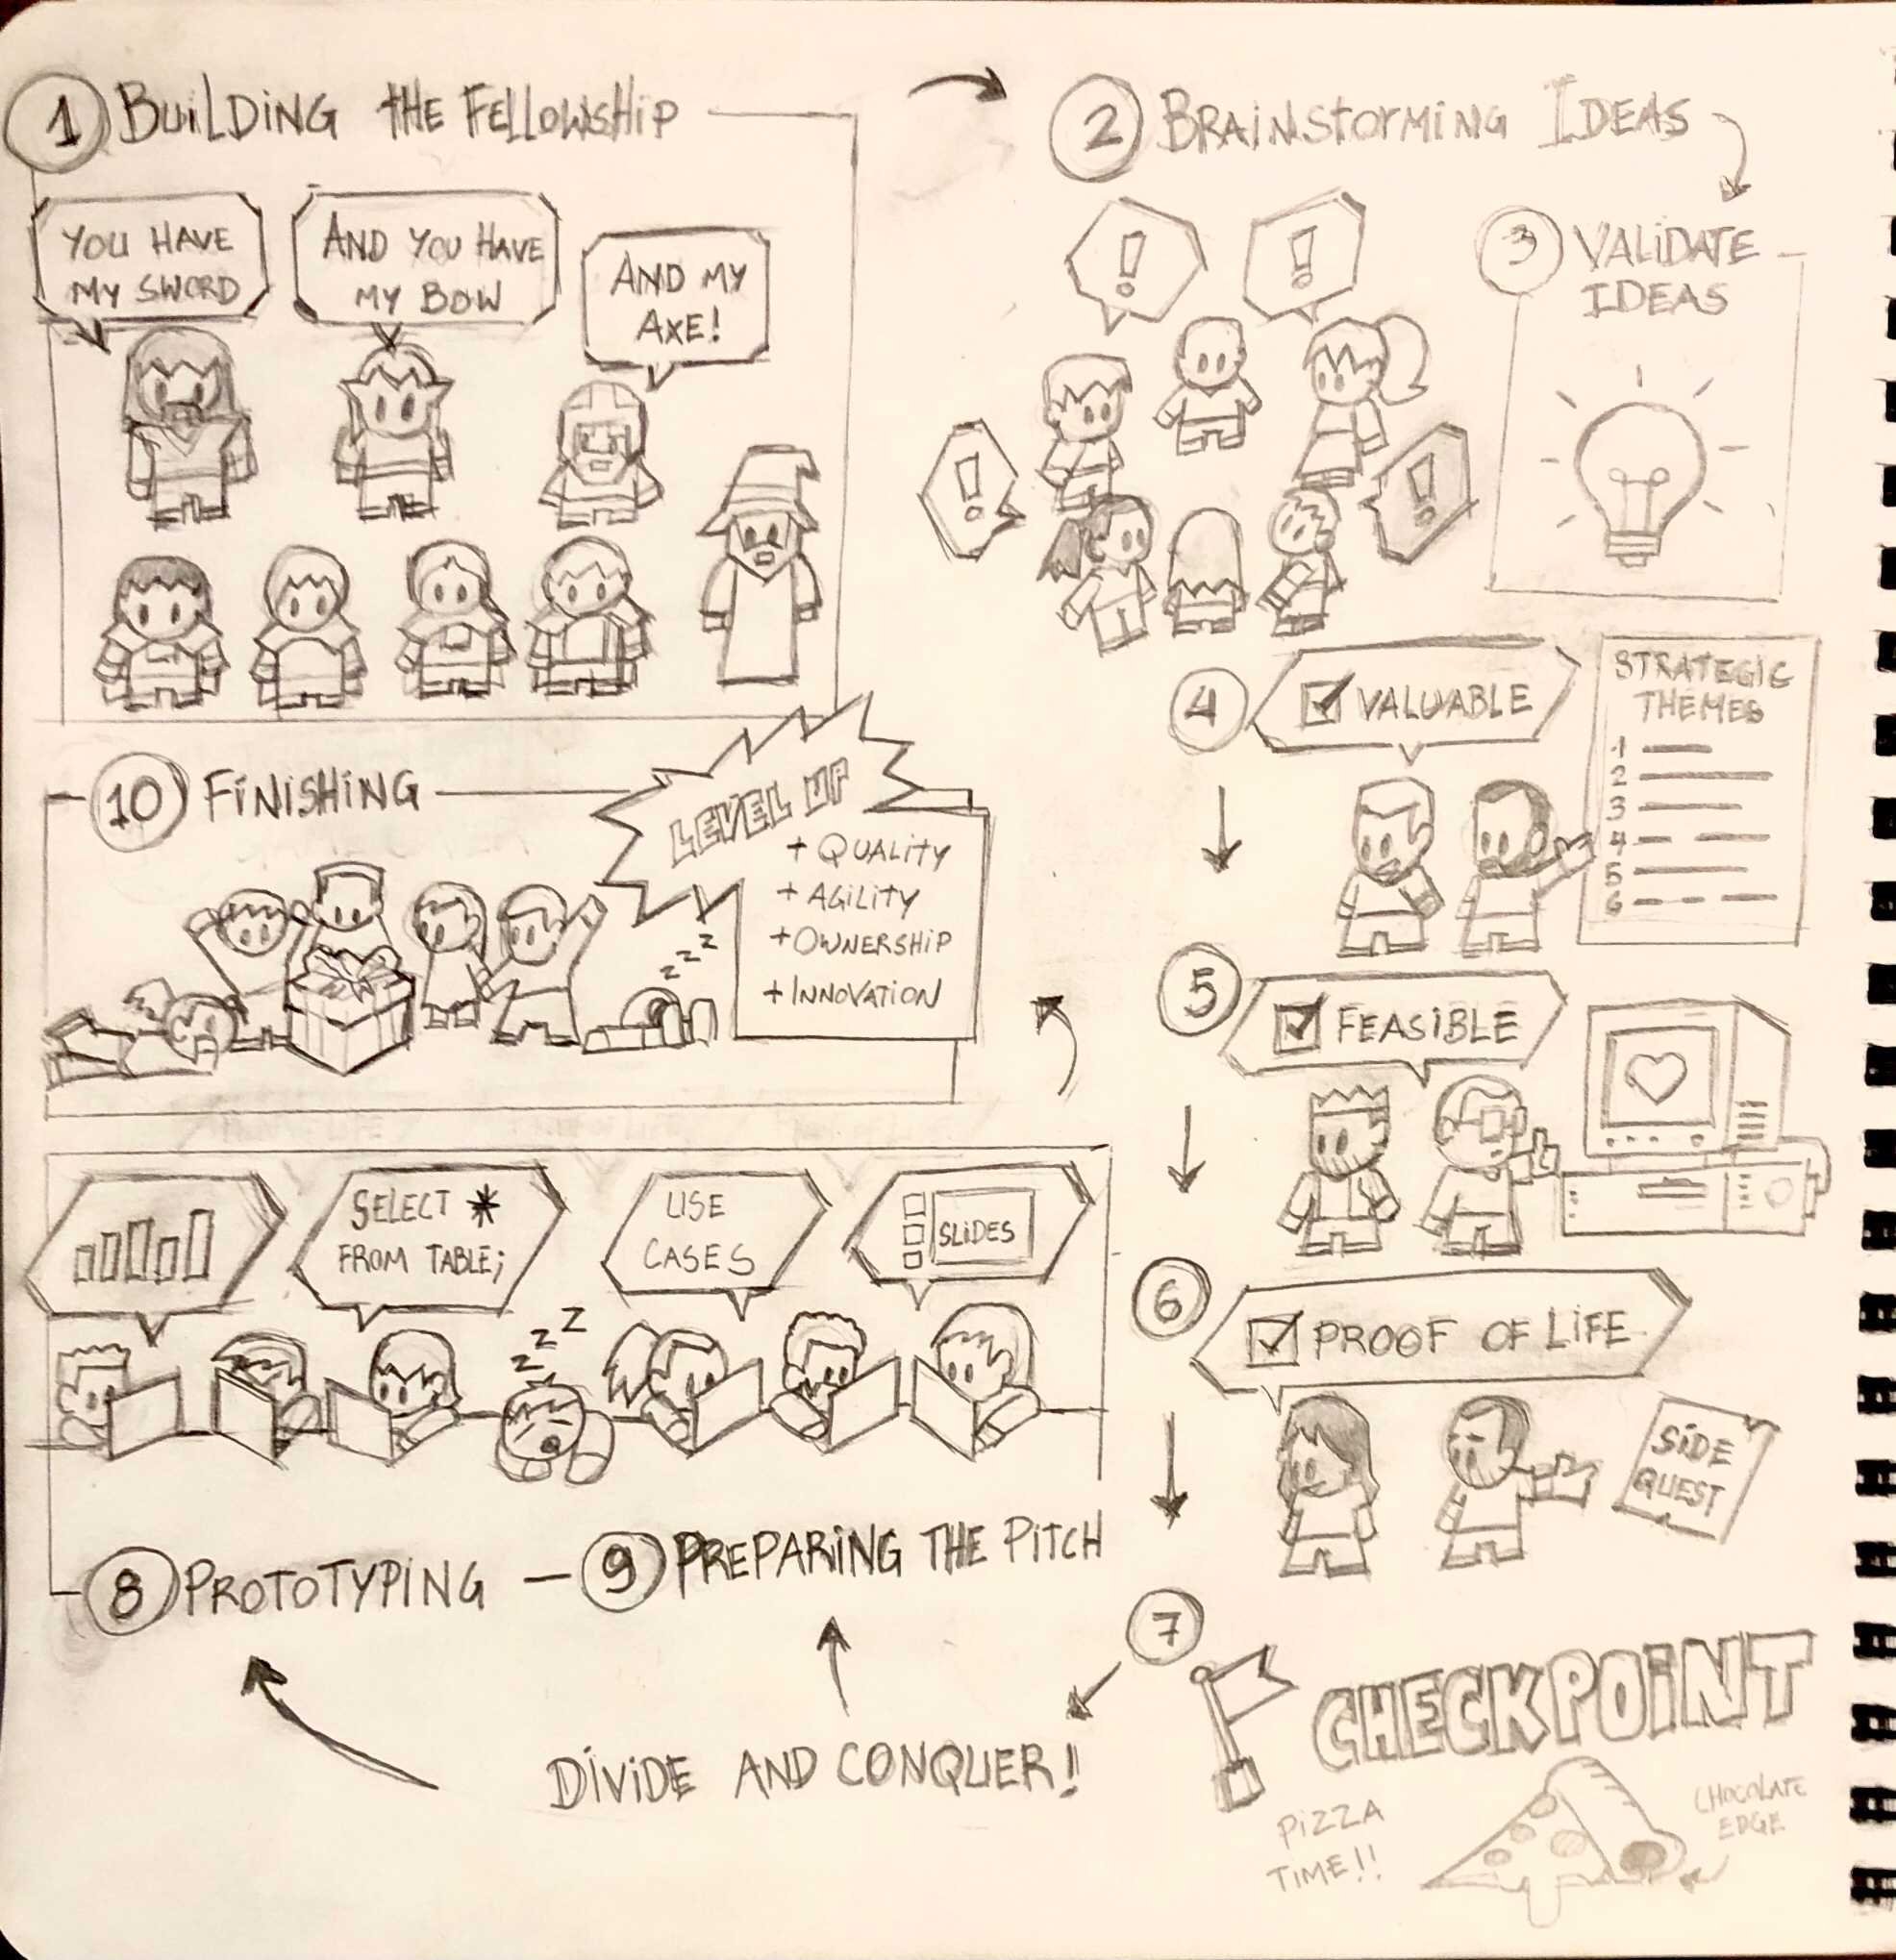 1 BUILDING THE FELLOWSHIP
YOU HAVE
MY SWORD
AND YOU HAVE
MY BOW
AND MY
AXE!
2 BRAINSTORMING IDEAS
!
!
!
!
3 VALIDATE
IDEAS
4 VALUABLE
STRATEGIC
THEMES
1
2
3
4
5
6
5 FEASIBLE
6 PROOF OF LIFE
SIDE
QUEST
7 CHECKPOINT
PIZZA
TIME!!
CHOCOLATE
EDGE
DIVIDE AND CONQUER!
SELECT *
FROM TABLE;
USE
CASES
SLIDES
zzz
8 PROTOTYPING – 9 PREPARING THE PITCH
10 FINISHING
LEVEL UP
+ QUALITY
+ AGILITY
+ OWNERSHIP
+ INNOVATION
zzz